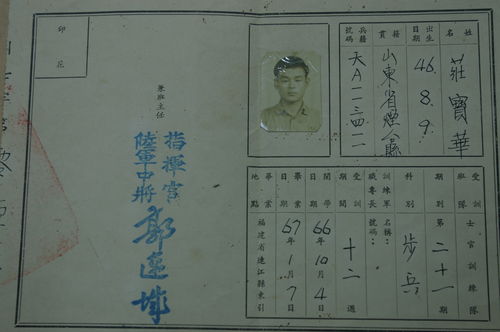 姓名 莊寶華
出生日期 46.8.9.
籍貫 山東省煙台縣
兵籍號碼 天A一一三四一一
受訓班隊 士官訓練隊
期別 第二十一期
科別 步兵
訓練軍職專長 名稱： 號碼：
受訓期間 十二週
開學日期 66年10月4日
畢業日期 67年1月7日
畢業地點 福建省連江縣東引
兼班主任
指揮官
陸軍中將
印花